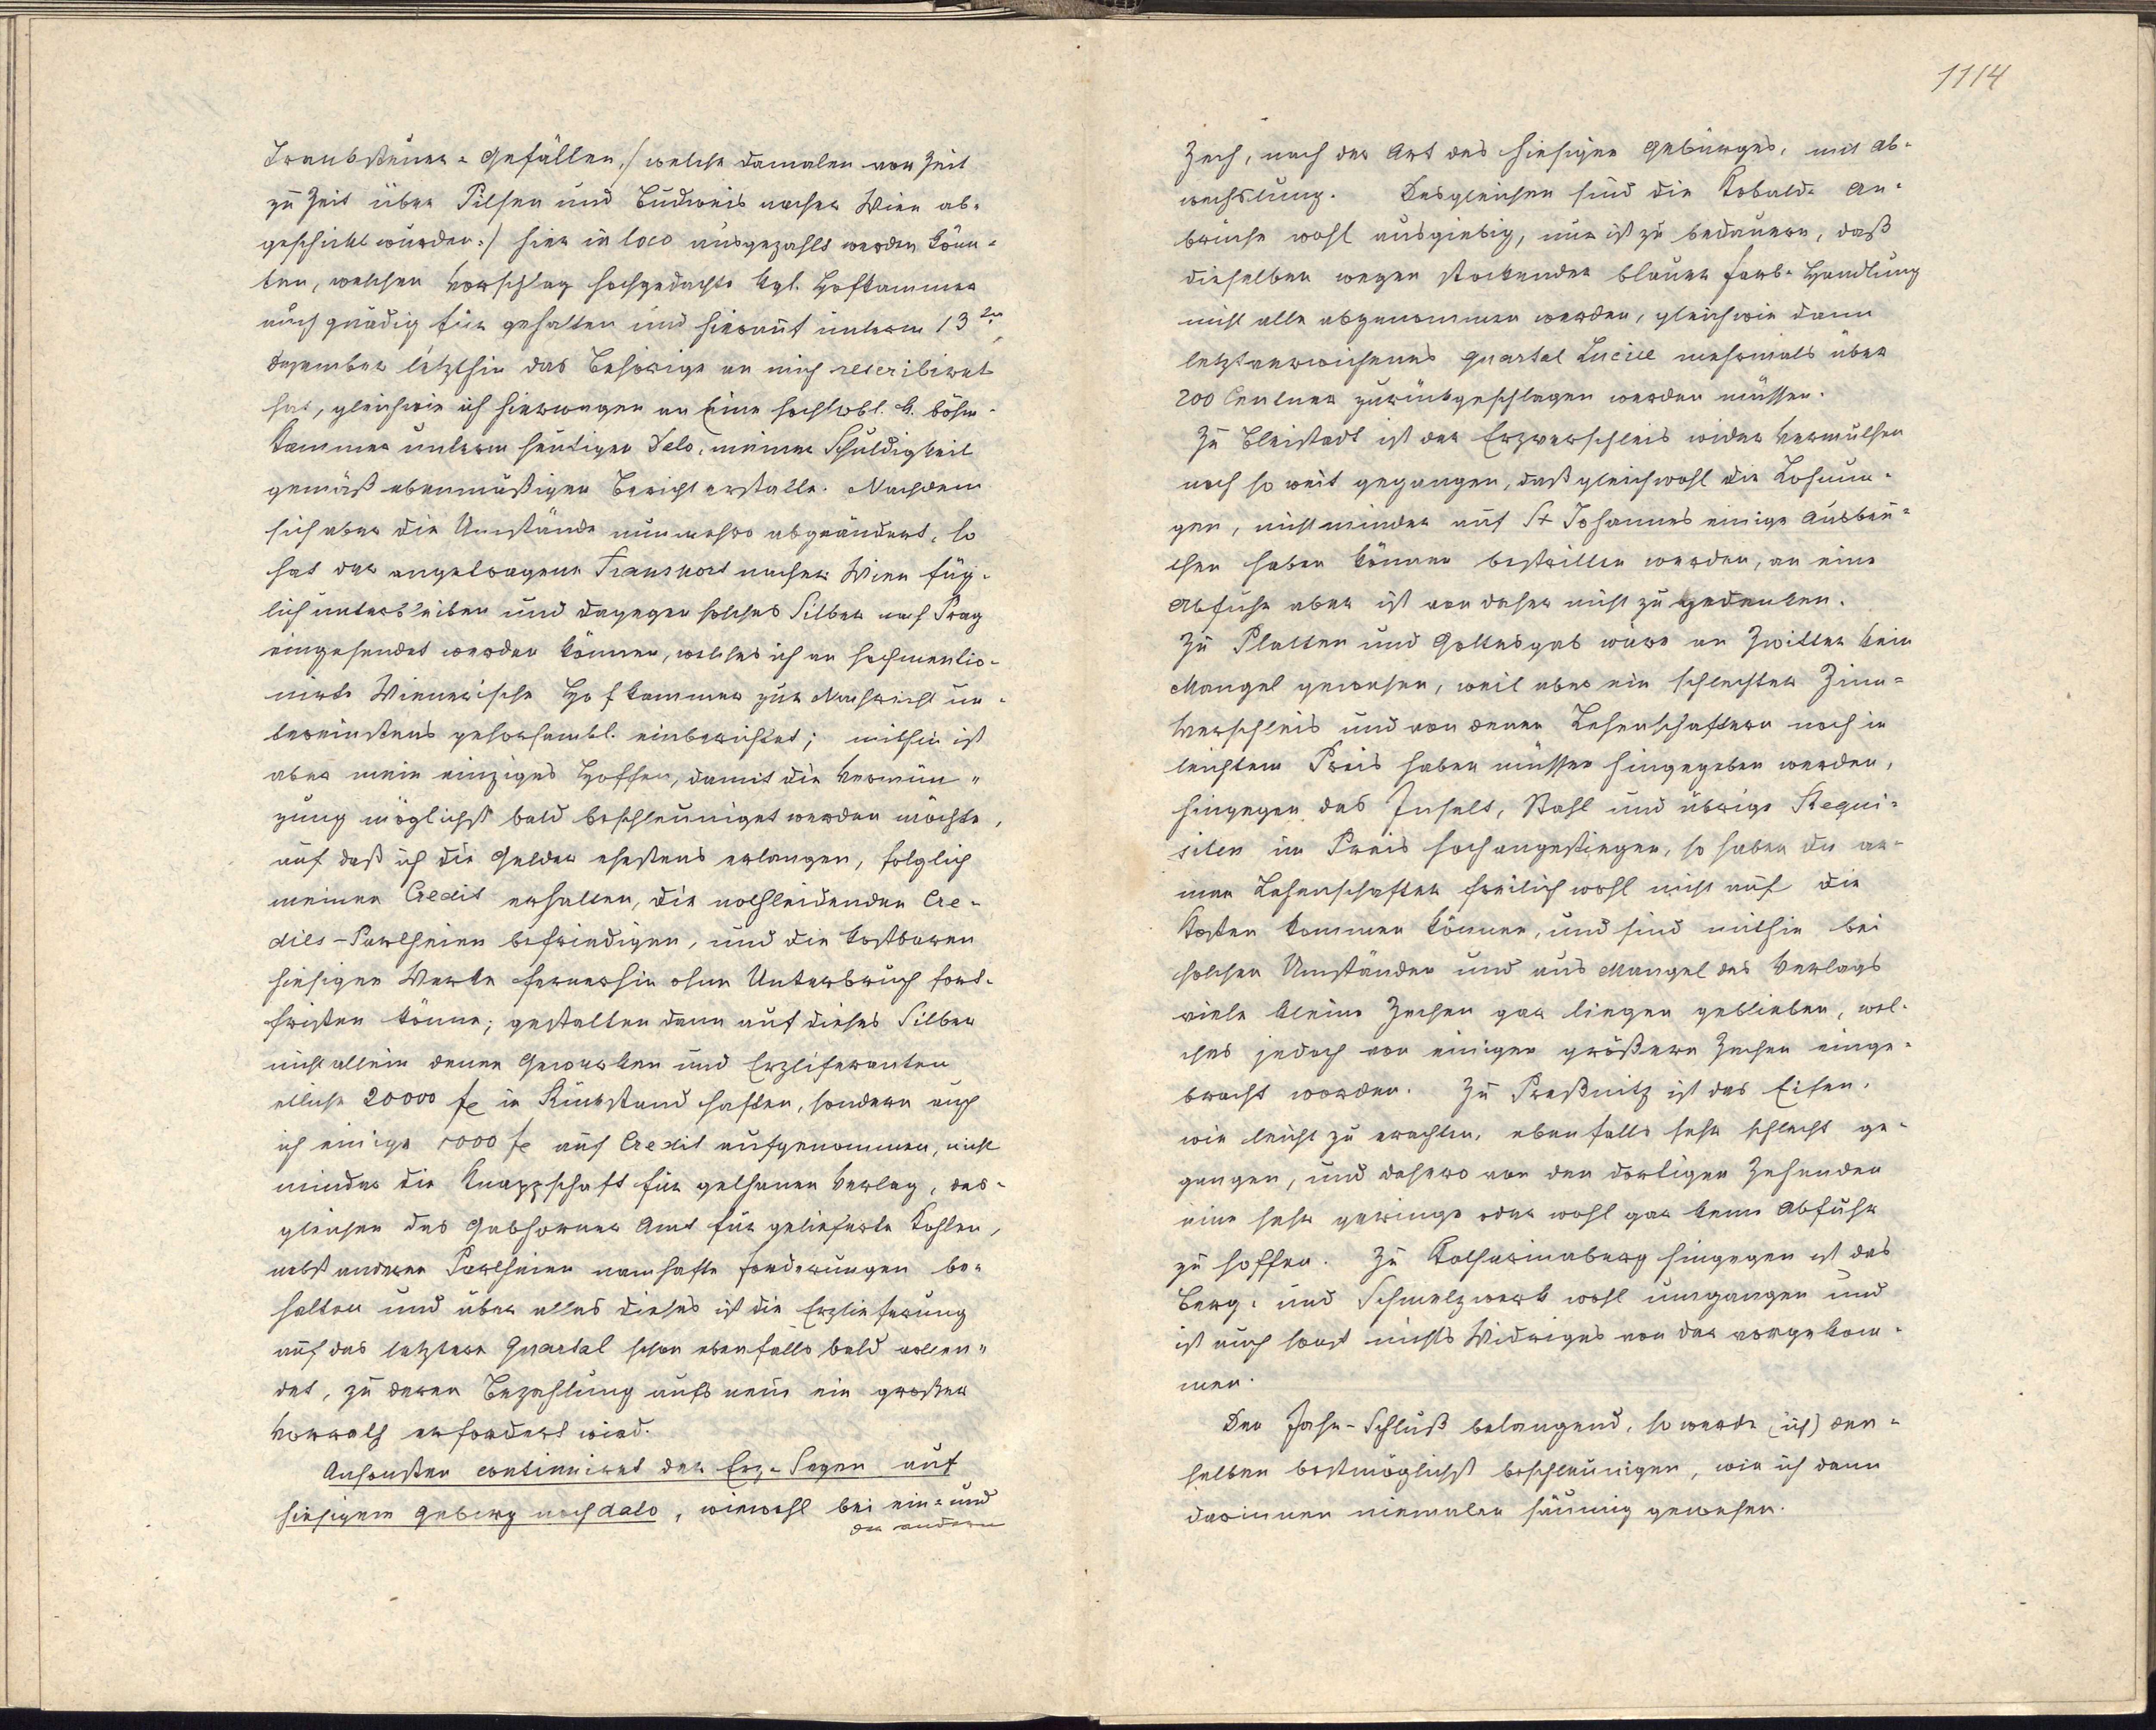 Tranksteuer-Gefällen,/ welche damalen von Zeit
zu Zeit über Pilsen und Budweis nacher Wien ab-
geschickt wurden:/ hier in loco ausgezahlt werden könn-
ten, welchen Vorschlag hochgedachte kgl. Hofkammer
auch gnädig für gehalten und hierauf unterm 13ten
Dezember letzthin das Behörige an mich rescribiret
hat, gleichwie ich hierwegen an Eine hochlobl. k. böhm.
Kammer unterm heutigen Dato, meiner Schuldigkeit
gemäß ebenmäßigen Bericht erstatte. Nachdem
sich aber die Umstände nunmehro abgeändert, so
hat der angetragene Transport nacher Wien füg-
lich unterbleiben und dagegen solches Silber nach Prag
eingesendet werden können, welches ich an hochmentio-
nirte Wienerische Hofkammer zur Nachricht un-
tereinstens gehorsambl. einberichtet; mithin ist
aber mein einziges Hoffen, damit die Vermün-
zung möglichst bald beschleuniget werden möchte,
auf daß ich die Gelder ehestens erlangen, folglich
meinen Credit erhalten, die nothleidenden Cre-
dits-Partheien befriedigen, und die kostbaren
hiesigen Werke fernerhin ohne Unterbruch fort-
fristen könne; gestalten dann auf dieses Silber
nicht allein denen Gewerken und Erzliferanten
etliche 20000 fl in Rückstand haften, sondern auch
ich einige 1000 fl auf Credit aufgenommen, nicht
minder die Knappschaft für gethanen Verlag, des-
gleichen das Amt für gelieferte Kohlen,
nebst anderen Partheien namhafte Forderungen be-
halten und über alles dieses ist die Erzlieferung
auf das letztere Quartal schon ebenfalls bald vollen-
det, zu deren Bezahlung aufs neue ein großer
Vorrath erfordert wird.
Ansonsten continuiret der Erz-Segen auf
hiesigem Gebirg noch dato, wiewohl bei ein- und
der andern
1114
Zech, nach der Art des hiesigen Gebürges, mit Ab-
wechslung. Desgleichen sind die Kobald- An-
brüche wohl ausgiebig, nur ist zu bedauern, daß
dieselben wegen stockender blauer Farb-Handlung
nicht alle abgenommen werden, gleichwie dann
letztverwichenes Quartal Luciae mehrmals über
200 Centner zurückgeschlagen werden müssen.
Zu Bleistadt ist der Erzverschleis wider Vermuthen
noch so weit gegangen, daß gleichwohl die Lohnun-
gen, nicht minder auf St Johannes einige Ausbeu-
then haben können bestritten werden, an eine
Abfuhr aber ist von daher nicht zu gedenken.
Zu Platten und Gottesgab wäre an Zwitter kein
Mangel gewesen, weil aber ein schlechter Zinn-
Verschleis und von denen Lehenschaftern noch in
leichtem Preis haben müssen hingegeben werden,
hingegen das Inselt, Stahl und übrige Requi-
siten im Preis hoch angestiegen, so haben die ar-
men Lehenschafter freilich wohl nicht auf die
Kosten kommen können, und sind mithin bei
solchen Umständen und aus Mangel des Verlags
viele kleine Zechen gar liegen geblieben, wel-
ches jedoch von einigen größern Zechen einge-
bracht worden. Zu Preßnitz ist das Eisen,
wie leicht zu erachten, ebenfalls sehr schlecht ge-
gangen, und dahero von den dortigen Zehenden
eine sehr geringe oder wohl gar keine Abfuhr
zu hoffen. Zu Katharinaberg hingegen ist das
Berg- und Schmelzwerk wohl umgangen und
ist auch sonst nichts Widriges von dar vorgekom-
men.
Den Jahr-Schluß belangend, so werde (ich) den-
selben bestmöglichst beschleunigen, wie ich dann
darinnen niemalen säumig gewesen.